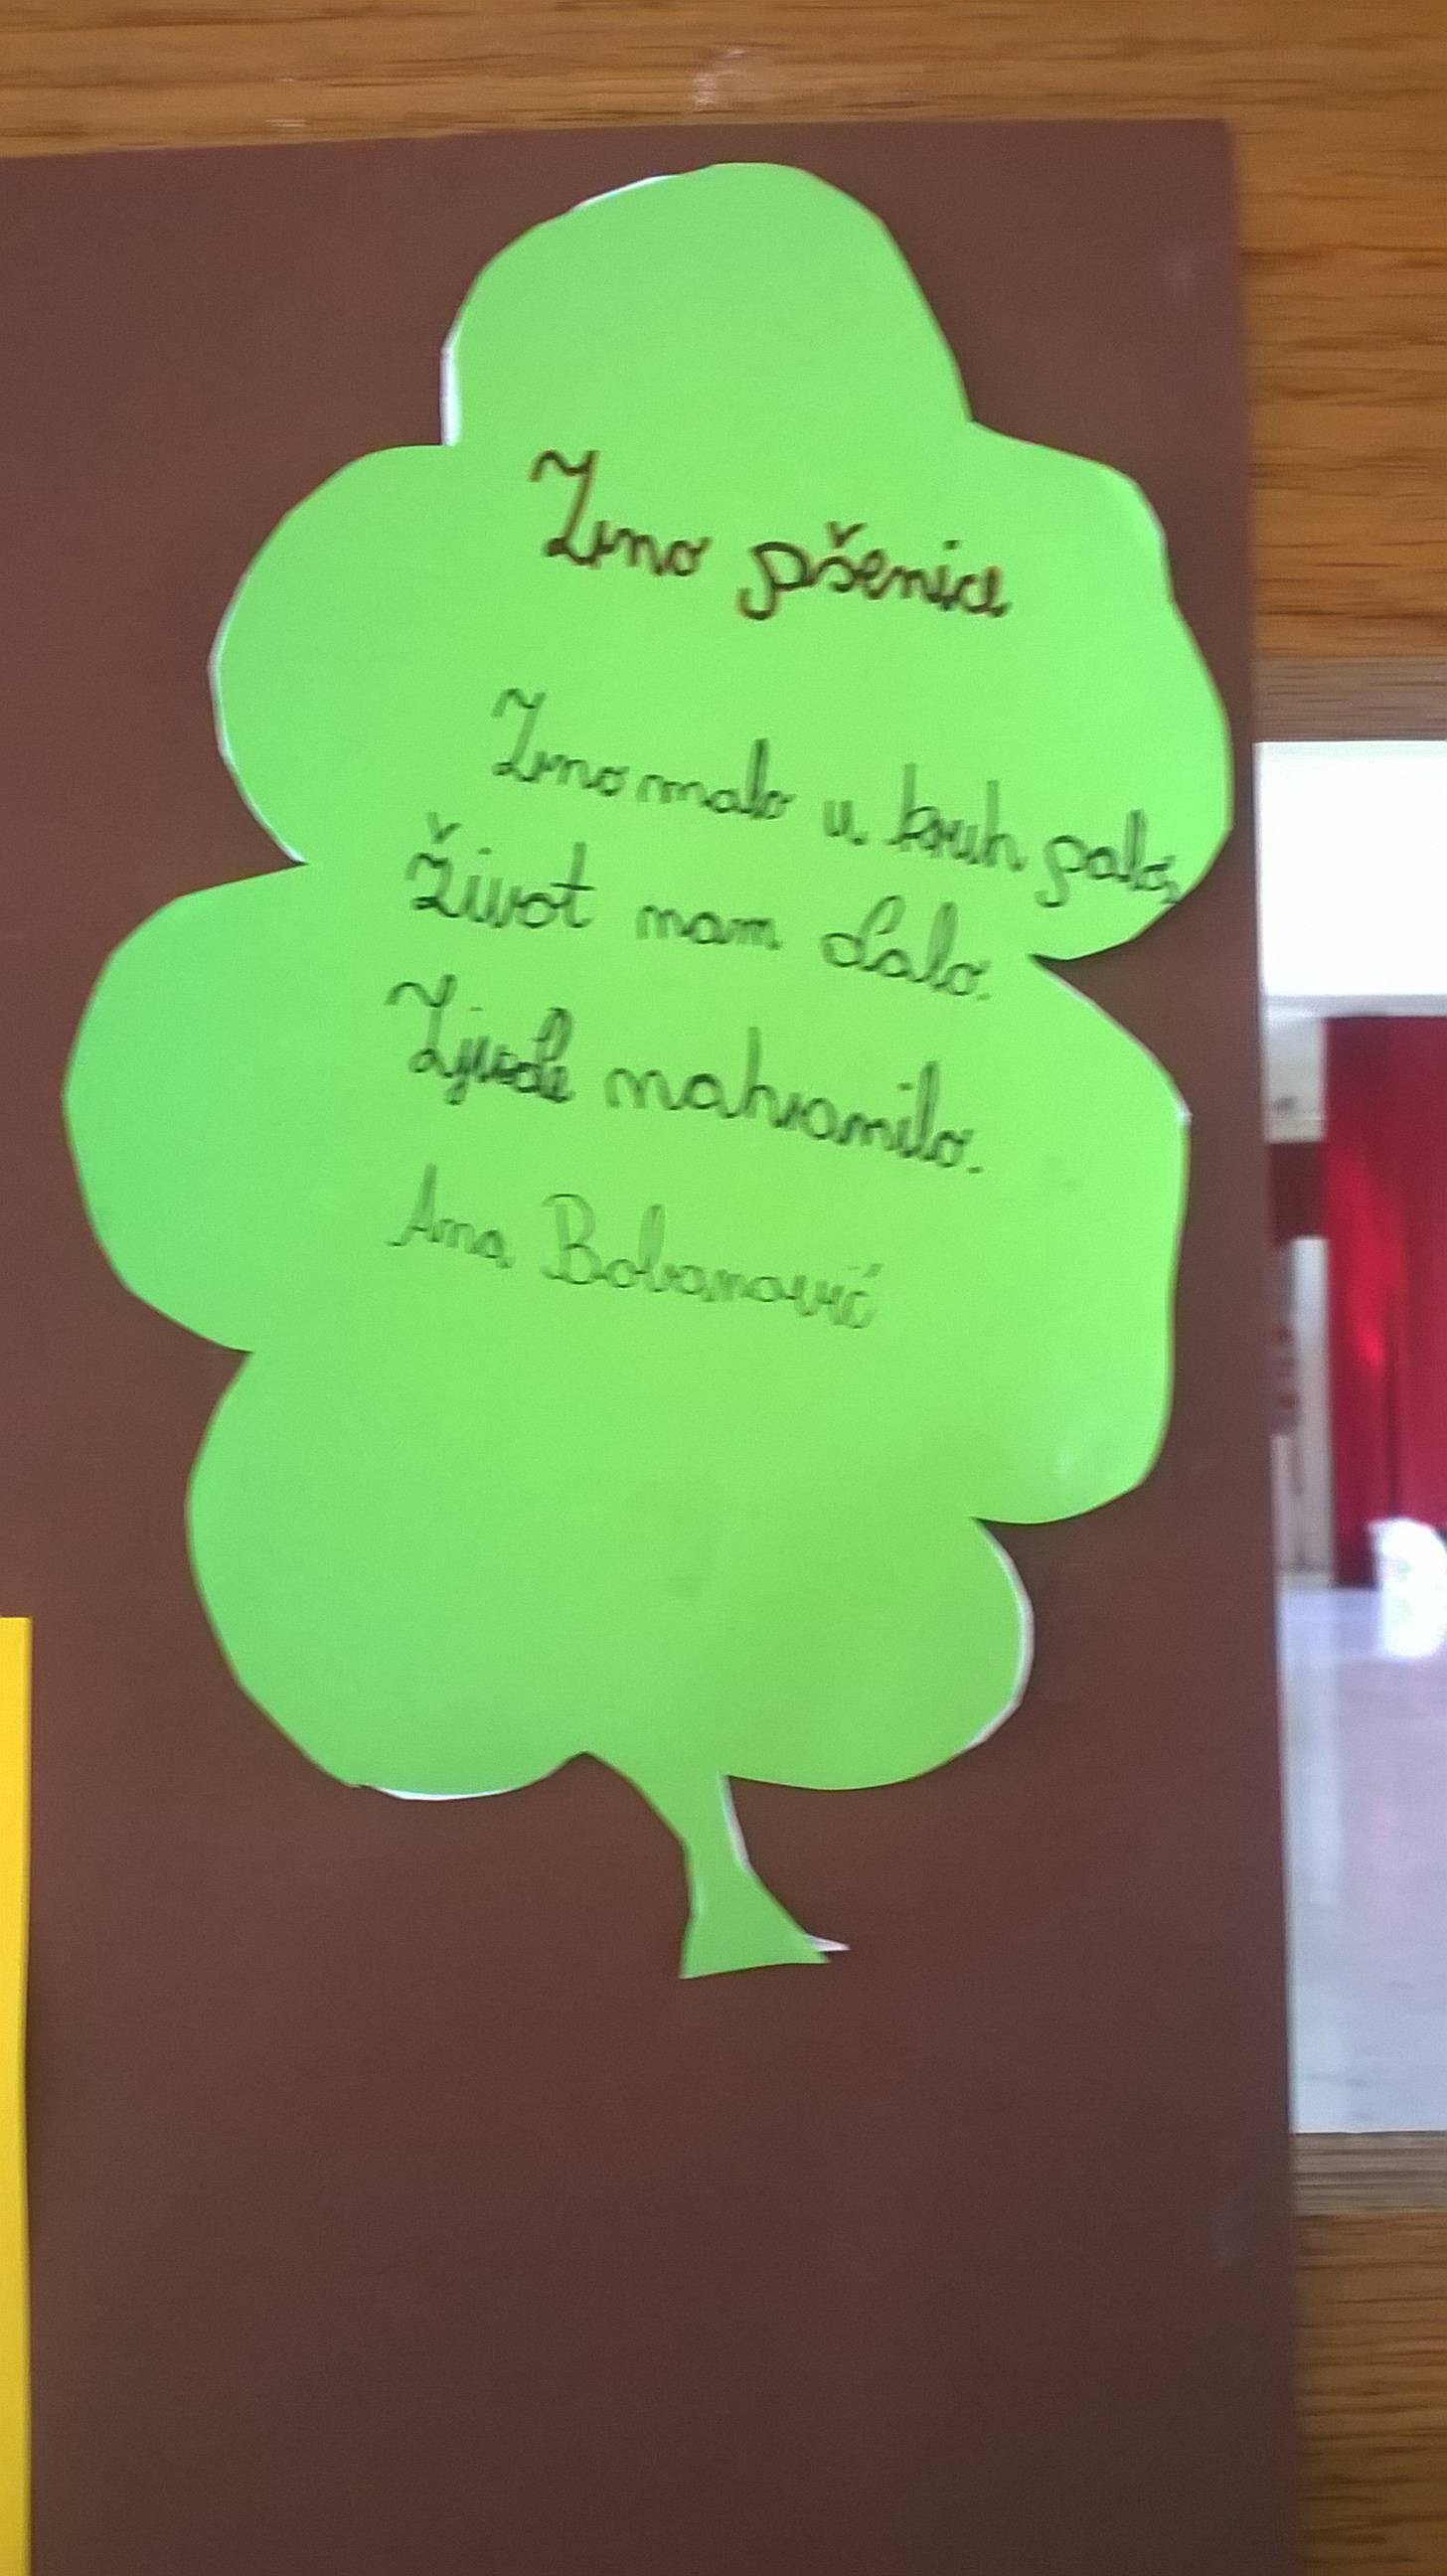 Zrno pšenice
Zrno malo u kruh palo,
život nam dalo.
Ljude nahranilo.
Ana Bobanović